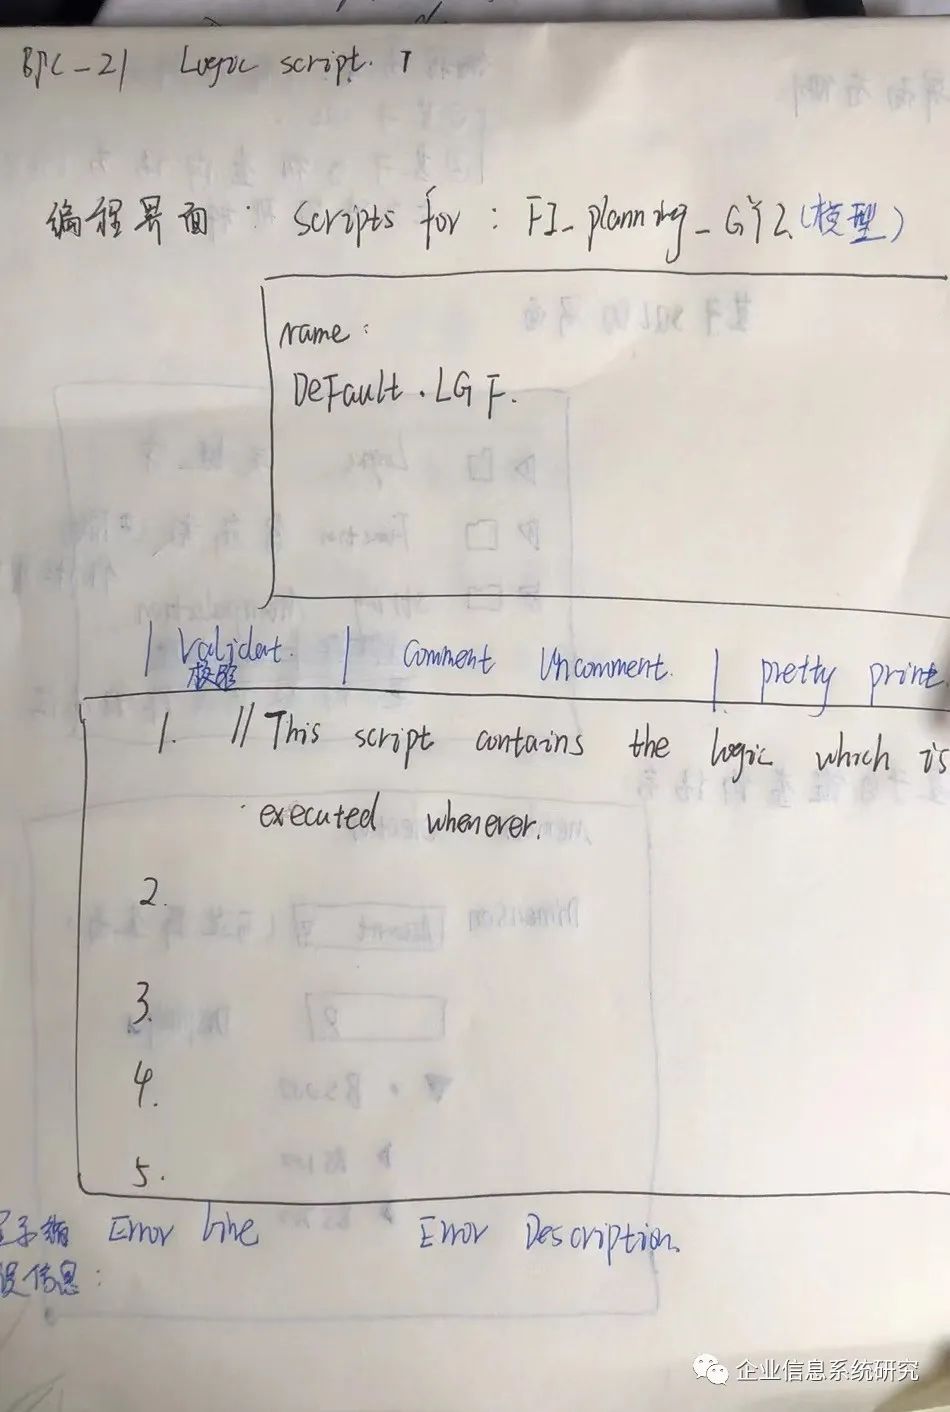 BPC-21 Logic script. I
编程界面: scripts for: FI_planning_GYZ(模型)
name:
Default.LGF.
| Validat. | Comment Uncomment. | pretty print
校验
1. // This script contains the logic which is
executed whenever.
2.
3.
4.
5.
Error line Error Description
误信息:
企业信息系统研究